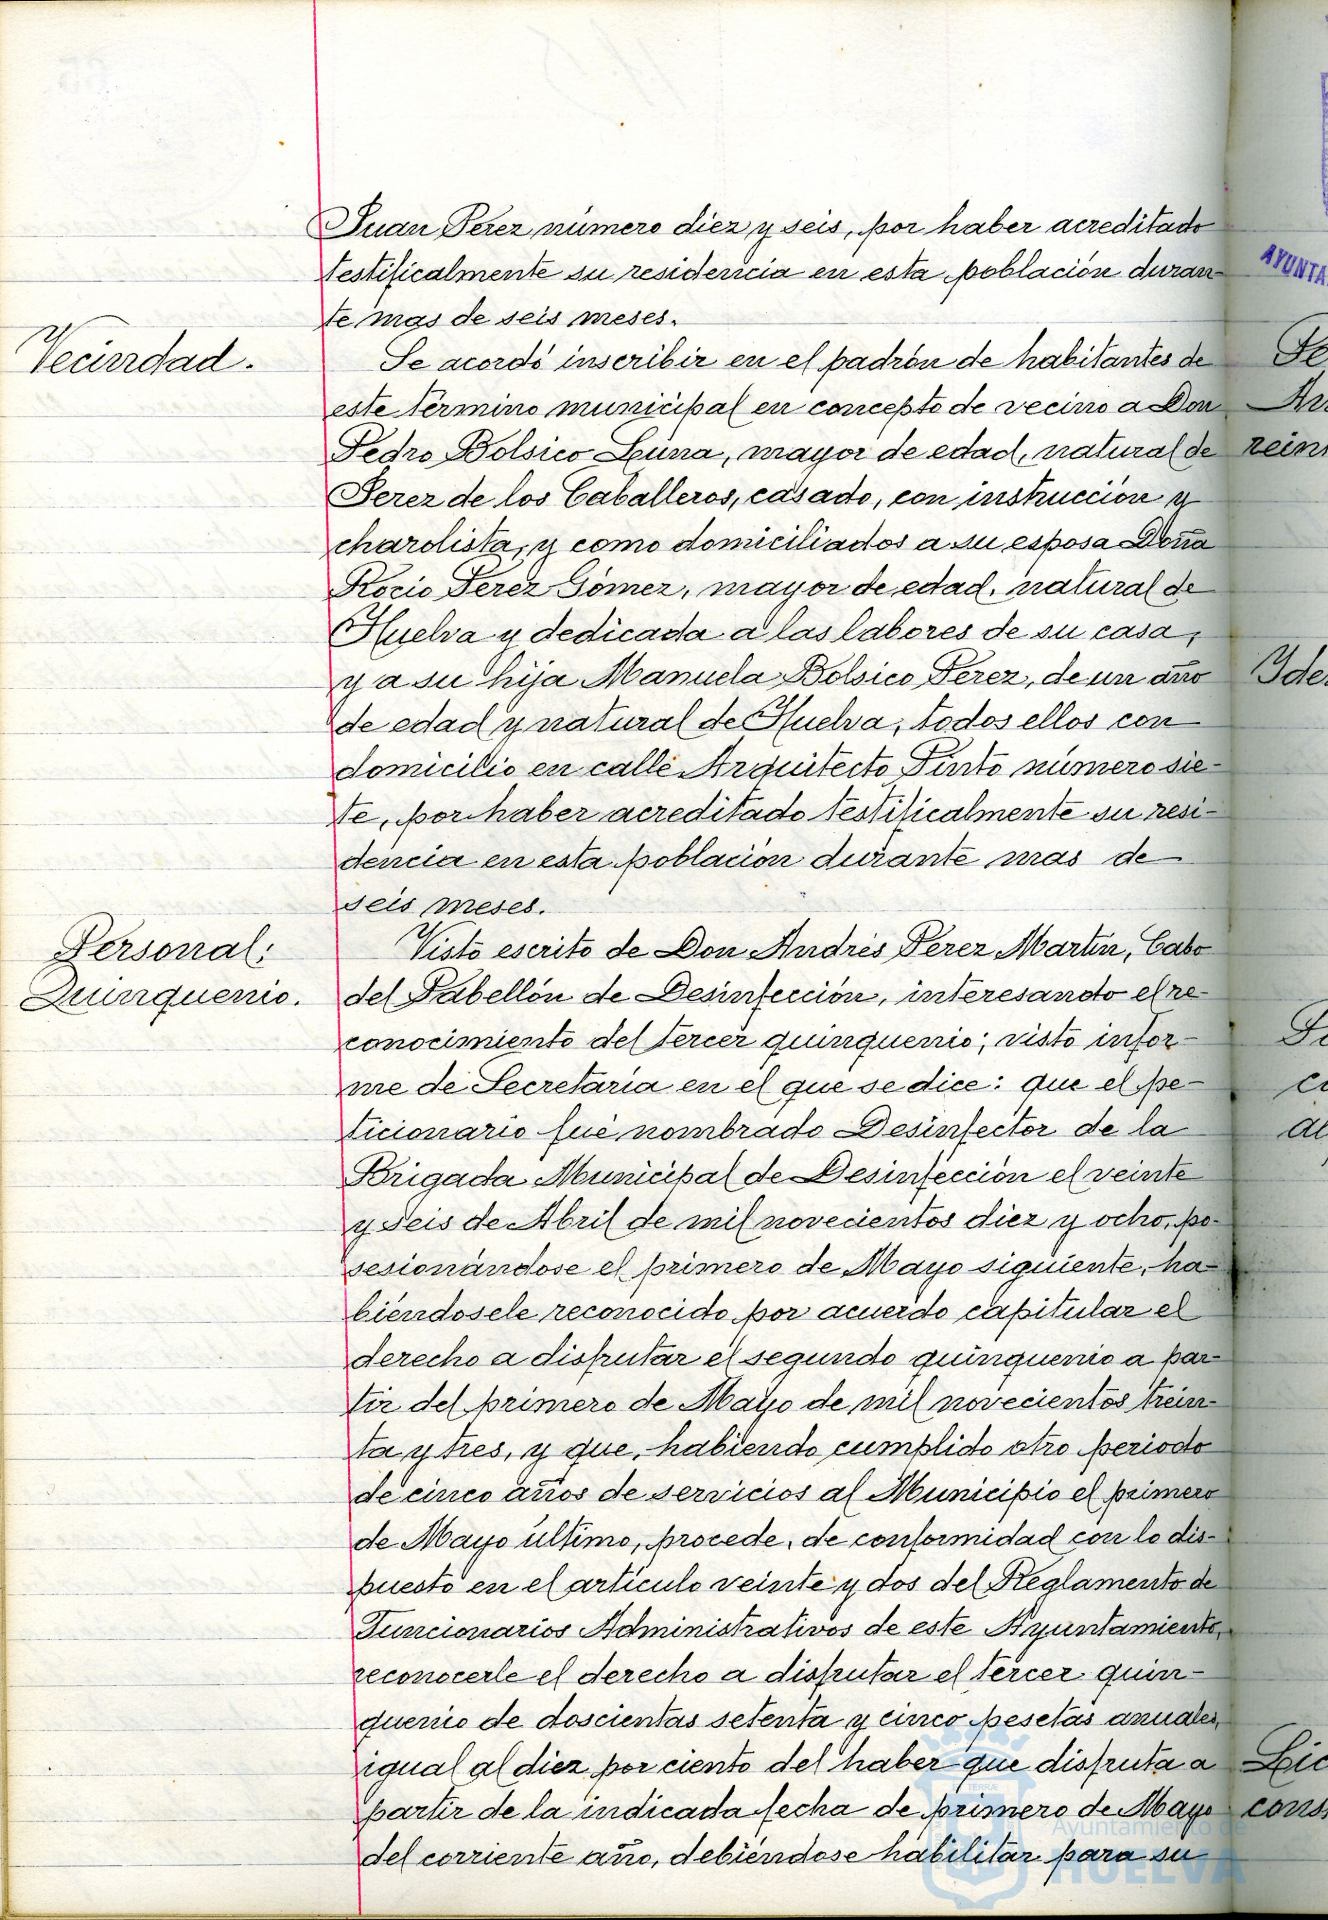 Juan Perez número diez y seis, por haber acreditado
testificalmente su residencia en esta población duran-
te mas de seis meses.
Vecindad.
Se acordó inscribir en el padrón de habitantes de
este término municipal en concepto de vecino a Don
Pedro Bolsico Luna, mayor de edad, natural de
Jerez de los Caballeros, casado, con instrucción y
charolista, y como domiciliados a su esposa Doña
Rocio Perez Gómez, mayor de edad, natural de
Huelva y dedicada a las labores de su casa,
y a su hija Manuela Bolsico Perez, de un año
de edad y natural de Huelva, todos ellos con
domicilio en calle Arquitecto Pinto número sie-
te, por haber acreditado testificalmente su resi-
dencia en esta población durante mas de
seis meses.
Personal:
Quinquenio.
Visto escrito de Don Andrés Perez Martin, Cabo
del Pabellón de Desinfección, interesando el re-
conocimiento del tercer quinquenio; visto infor-
me de Secretaría en el que se dice: que el pe-
ticionario fué nombrado Desinfector de la
Brigada Municipal de Desinfección el veinte
y seis de Abril de mil novecientos diez y ocho, po-
sesionándose el primero de Mayo siguiente, ha-
biéndosele reconocido por acuerdo capitular el
derecho a disfrutar el segundo quinquenio a par-
tir del primero de Mayo de mil novecientos trein-
ta y tres, y que, habiendo cumplido otro periodo
de cinco años de servicios al Municipio el primero
de Mayo último, procede, de conformidad con lo dis-
puesto en el artículo veinte y dos del Reglamento de
Funcionarios Administrativos de este Ayuntamiento,
reconocerle el derecho a disfrutar el tercer quin-
quenio de doscientas setenta y cinco pesetas anuales,
igual al diez por ciento del haber que disfruta a
partir de la indicada fecha de primero de Mayo
del corriente año, debiéndose habilitar para su
Ayuntamiento de
HUELVA